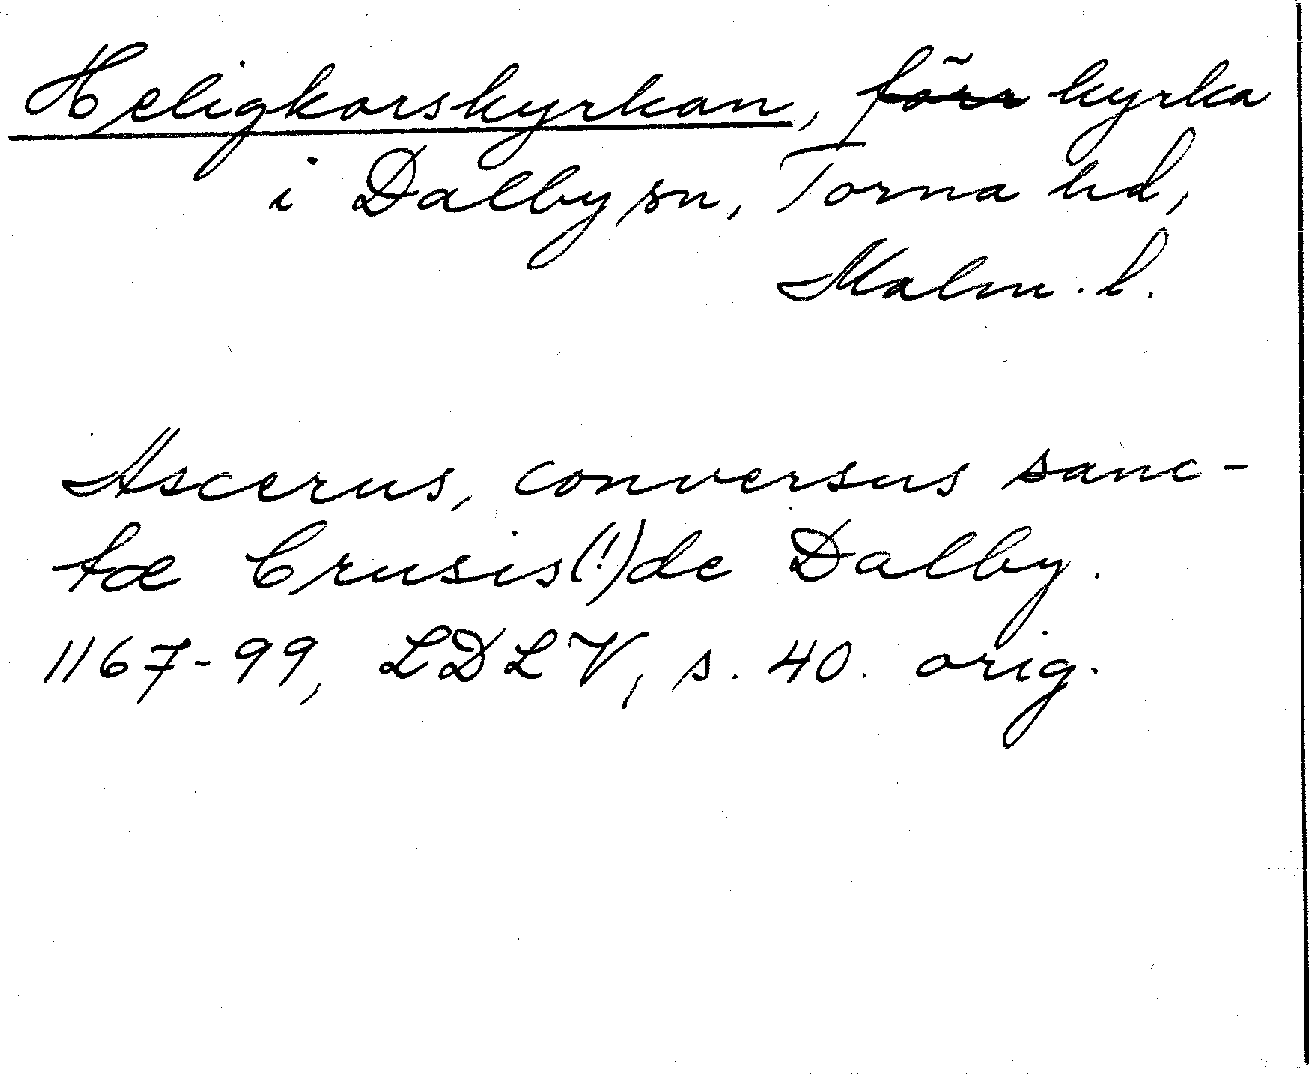 Heligkorskyrkan, förr kyrka
i Dalby sn, Torna hd,
Malm. l.
Ascerus, conversus sanc-
tæ Crusis(!) de Dalby.
1167-99, LDLV, s. 40. orig.